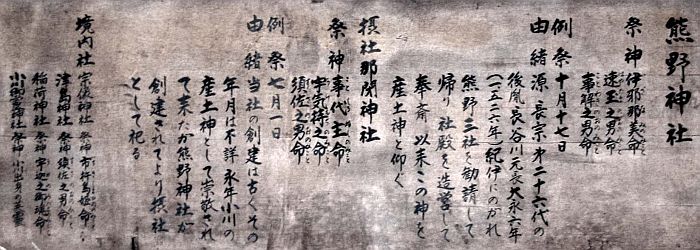 熊野神社
祭神 伊邪那美命
速玉之男命
事解之男命
例祭 十月十七日
由緒 源 長宗 才二十六代の
後胤 長谷川元長大永六年
(一五二六年)紀伊にのがれ
熊野三社を勧請して
帰り 社殿を造営して
奉斎 以来この神を
産土神と仰ぐ
摂社 那閇神社
祭神 事代主命
宇気持之命
須佐之男命
例祭 七月一日
由緒 当社の創建は古くその
年月は不詳 永年小川の
産土神として崇敬され
て来たが熊野神社が
創建されてより摂社
として祀る
境内社
宗像神社 祭神 市杵島姫命
津島神社 祭神 須佐之男命
稲荷神社 祭神 宇迦之御魂命
小御霊神社 祭神 小川出身の英霊